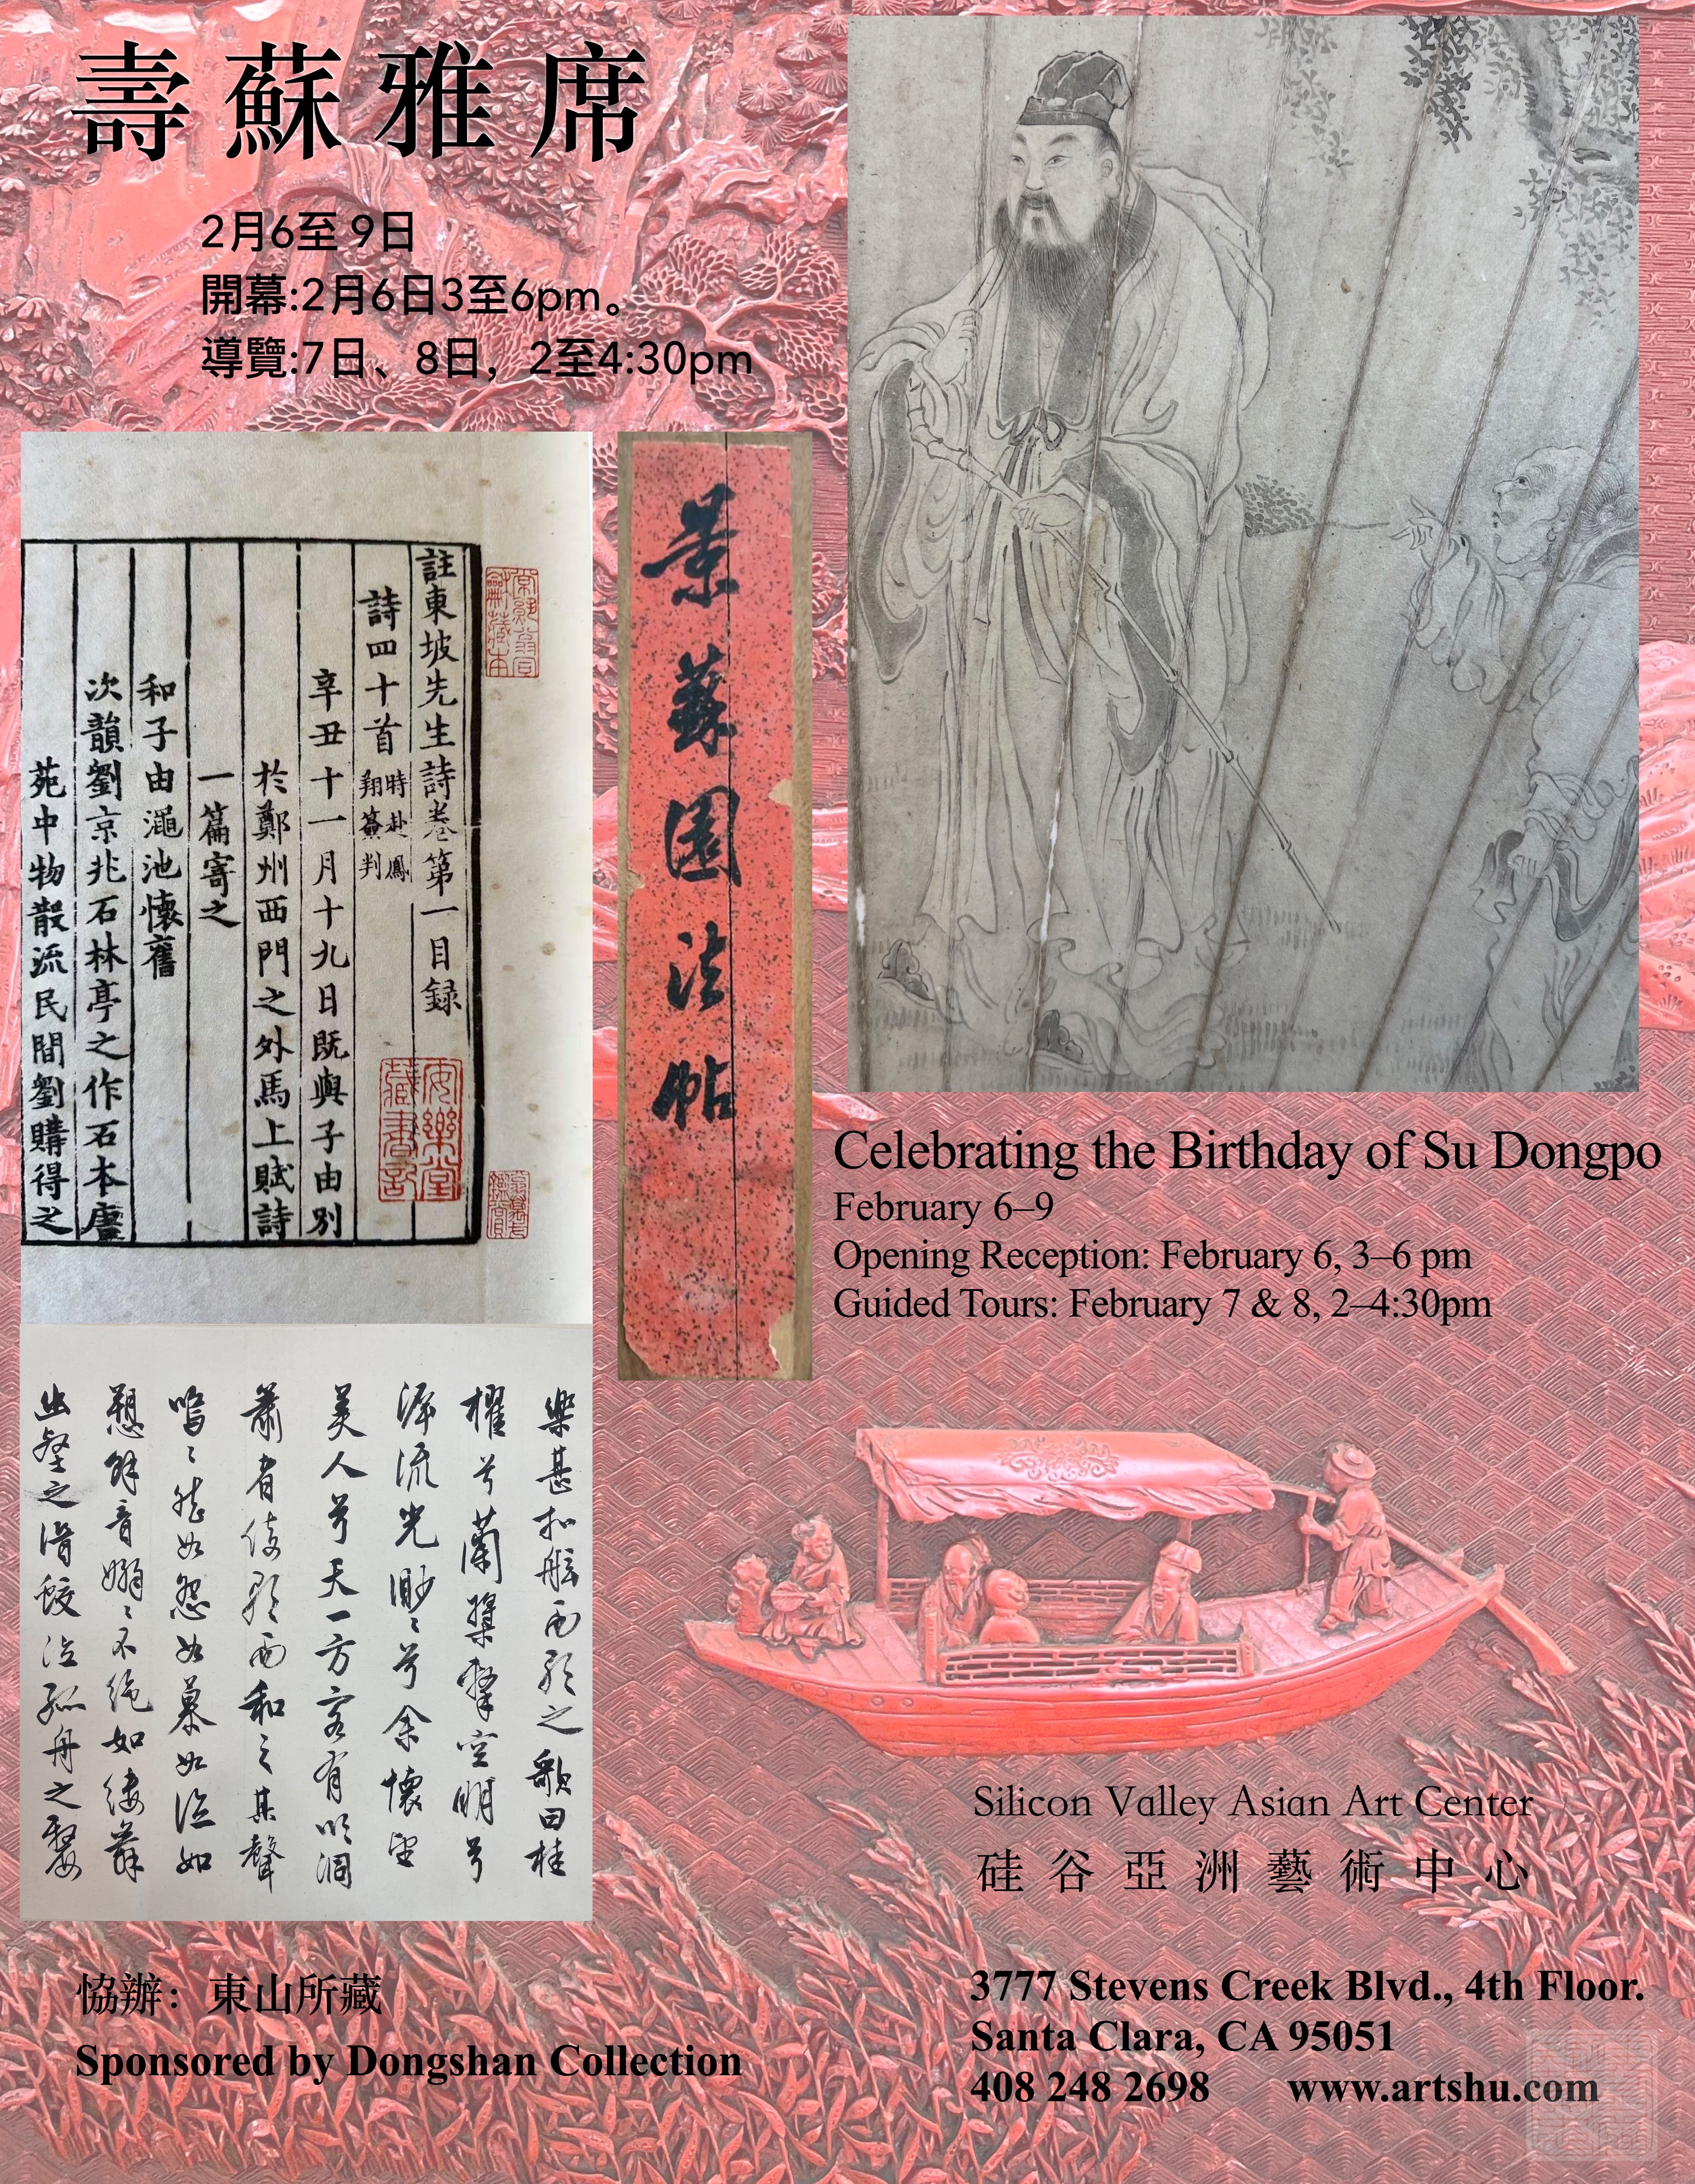 壽蘇雅席
2月6至 9日
開幕:2月6日3至6pm。
導覽:7日、8日，2至4:30pm
註東坡先生詩卷第一目録
詩四十首 時赴鳳翔簽判
辛丑十一月十九日既與子由别
於鄭州西門之外馬上賦詩
一篇寄之
和子由澠池懷舊
次韻劉京兆石林亭之作石本唐
苑中物散流民間劉購得之
安樂堂
藏書記
景蘇園法帖
樂甚扣舷而歌之歌曰桂
櫂兮蘭槳擊空明兮
泝流光渺〻兮余懷望
美人兮天一方客有吹洞
簫者倚歌而和之其聲
嗚〻然如怨如慕如泣如
愬餘音嫋〻不絶如縷舞
幽壑之潛蛟泣孤舟之嫠
Celebrating the Birthday of Su Dongpo
February 6–9
Opening Reception: February 6, 3–6 pm
Guided Tours: February 7 & 8, 2–4:30pm
Silicon Valley Asian Art Center
硅谷亞洲藝術中心
協辦：東山所藏
Sponsored by Dongshan Collection
3777 Stevens Creek Blvd., 4th Floor.
Santa Clara, CA 95051
408 248 2698 www.artshu.com